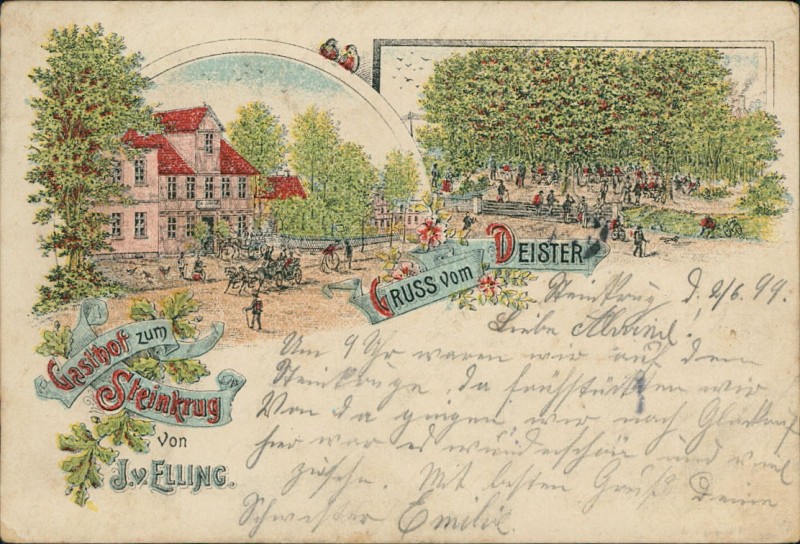 GRUSS vom DEISTER
Gasthof zum
Steinkrug
von
J. v. ELLING.
Steinkrug d. 2/6. 99.
Liebe
Um 9 Uhr waren wir auf dem
Steinkruge, da frühstückten wir
Von da gingen wir nach Glückauf
hier war es wunderschön und viel
Mit besten Gruß Deine
Schwester Emilie.